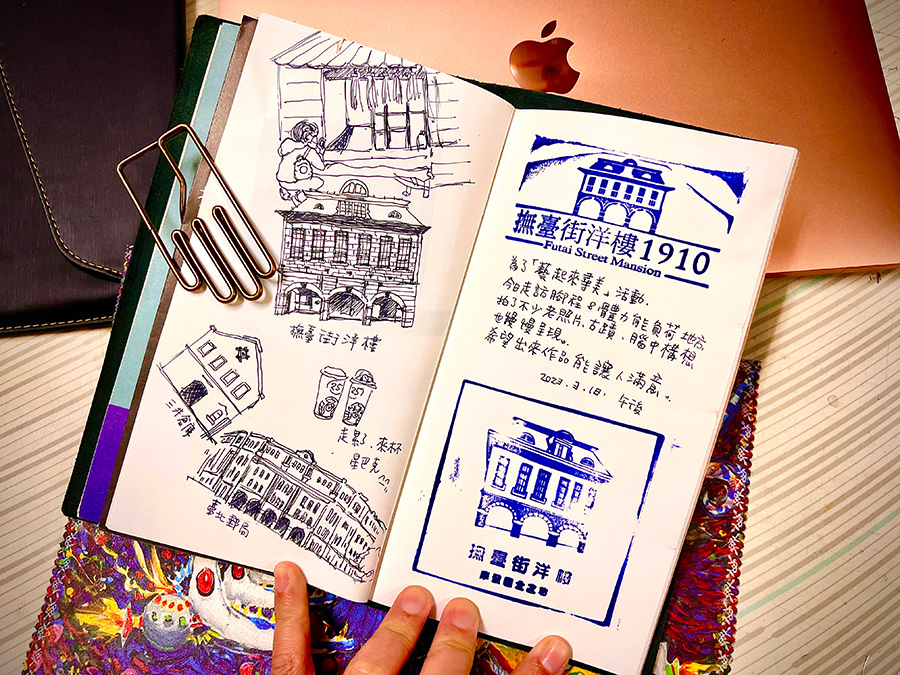 撫臺街洋樓
三井倉庫
25
25
走累了、來杯
星巴克
臺北郵局
撫臺街洋樓1910
Futai Street Mansion
為了「藝起來尋美」活動,
今日走訪腳程&體力能負荷地点
拍了不少老照片、古蹟、腦中構想
也慢慢呈現。
希望出來作品能讓人滿意。
2023.3.18. 午後
撫臺街洋樓